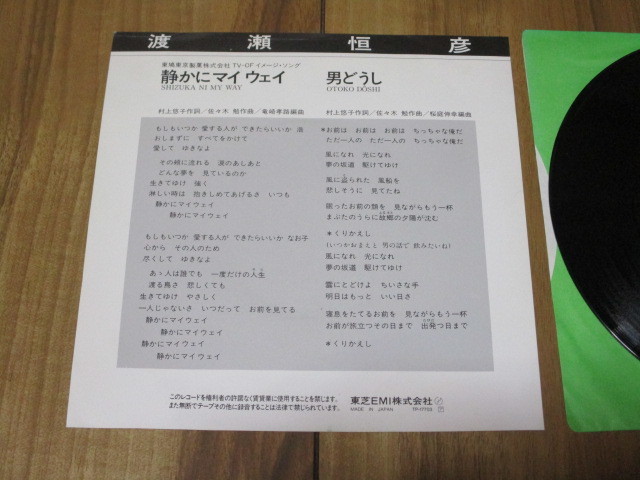 渡瀬恒彦
東鳩東京製菓株式会社 TV-CF イメージ・ソング
静かにマイ ウェイ
SHIZUKA NI MY WAY
村上悠子作詞／佐々木 勉作曲／竜崎孝路編曲
もしもいつか 愛する人が できたらいいか 油
おしまずに すべてをかけて
愛して ゆきなよ
その頬に流れる 涙のあしあと
どんな夢を 見ているのか
生きてゆけ 強く
淋しい時は 抱きしめてあげるさ いつも
静かにマイウェイ
静かにマイウェイ
もしもいつか 愛する人が できたらいいか なお子
心から その人のため
尽くして ゆきなよ
あゝ人は誰でも 一度だけの人生
渡る鳥さ 悲しくても
生きてゆけ やさしく
一人じゃないさ いつだって お前を見てる
静かにマイウェイ
静かにマイウェイ
静かにマイウェイ
静かにマイウェイ
男どうし
OTOKO DŌSHI
村上悠子作詞／佐々木 勉作曲／桜庭伸幸編曲
＊お前は お前は お前は ちっちゃな俺だ
ただ一人の ただ一人の ちっちゃな俺だ
風になれ 光になれ
夢の坂道 駆けてゆけ
風に盗られた 風船を
悲しそうに 見てたね
眠ったお前の顔を 見ながらもう一杯
まぶたのうらに故郷の夕陽が沈む
＊くりかえし
(いつかおまえと 男の話で 飲みたいね)
風になれ 光になれ
夢の坂道 駆けてゆけ
雲にとどけよ ちいさな手
明日はもっと いい日さ
寝息をたてるお前を 見ながらもう一杯
お前が旅立つその日まで 出発つ日まで
＊くりかえし
このレコードを権利者の許諾なく賃貸業に使用することを禁じます。
また無断でテープその他に録音することは法律で禁じられています。
東芝EMI株式会社
MADE IN JAPAN TP-17755